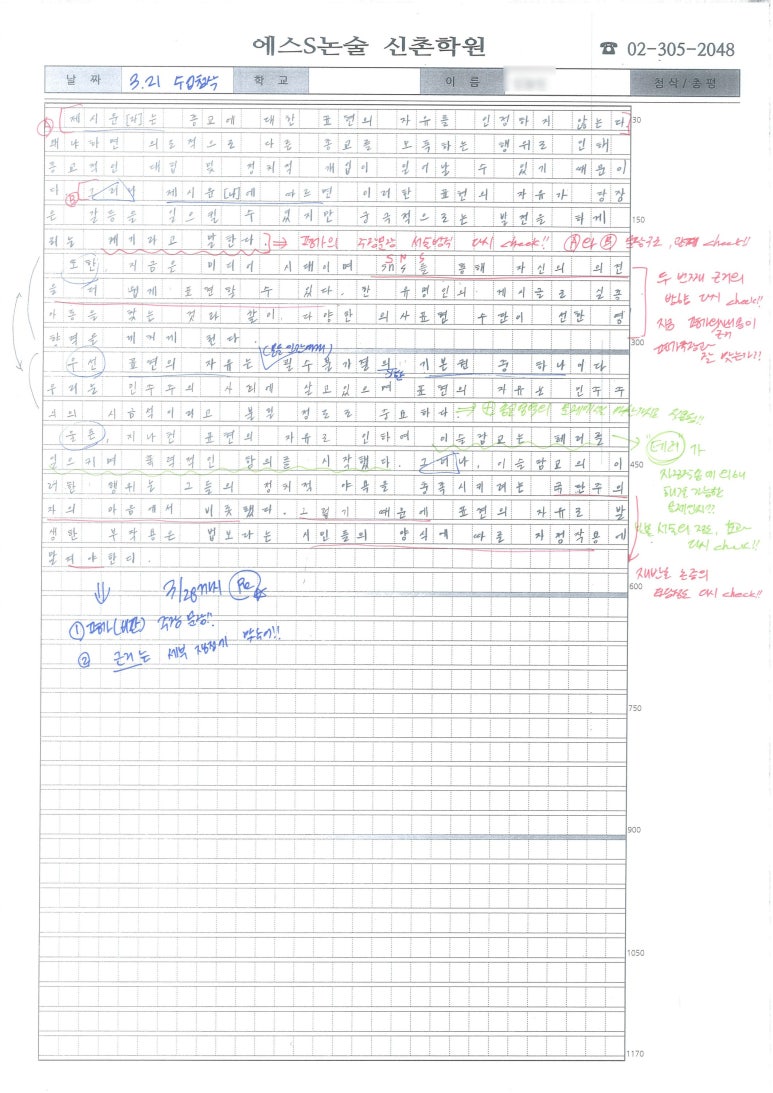 에스S논술 신촌학원 ☎ 02-305-2048
날 짜 3.21 수업첨삭 학 교 이 름 첨삭/총평
Ⓐ 제시문[다]는 종교에 대한 표현의 자유를 인정하지 않는다 30
왜냐하면 의도적으로 다른 종교를 모독하는 행위로 인해
종교적인 대립 및 정치적 개입이 일어날 수 있기 때문이
다 Ⓑ 그러나 제시문[나]에 따르면 이러한 표현의 자유가 당장
은 갈등을 일으킬 수 있지만 궁극적으로는 발전을 하게 150
되는 계기라고 말한다. ⇒ 평가의 주장문장 서술방식 다시 check!! Ⓐ와 Ⓑ 문장구조, 관계 check!!
또한, 지금은 미디어 시대이며 SNS를 통해 자신의 의견
을 더 쉽게 표현할 수 있다. 한 유명인의
두 번째 근거의
방향 다시 check!!
아등을 찾는 것과 같이 다양한 의사표현 수단이 선한 영
향력을 끼치게 된다. 300
우선 표현의 자유는 필수불가결의 기본권 중 하나이다
우리는 민주주의 사회에 살고있으며 표현의 자유는 민주주
의의 시금석이라고 불릴 정도로 중요하다.
물론, 지나친 표현의 자유로 인하여 이슬람교는 테러를
일으키며 폭력적인 항의를 시작했다. 그러나, 이슬람교의 이 450
"테러"가
러한 행위는 그들의 정치적 야욕을 충족시키려는 극단주의
자의 마음에서 비롯됐다. 그렇기 때문에 표현의 자유로 발
생한 부작용은 법보다는 시민들의 양식에 따로 자정작용에
맡겨야한다.
다시 check!!
재반론 논증의
다시 check!!
600
⇓ 3/28까지 Re
① 평가(비판) 주장 문장!!
② 근거는 세부
750
900
1050
1170